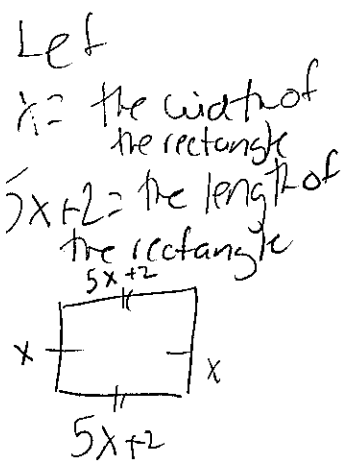 Let
x = the width of
the rectangle
5x+2 = the length of
the rectangle
5x+2
x
x
5x+2